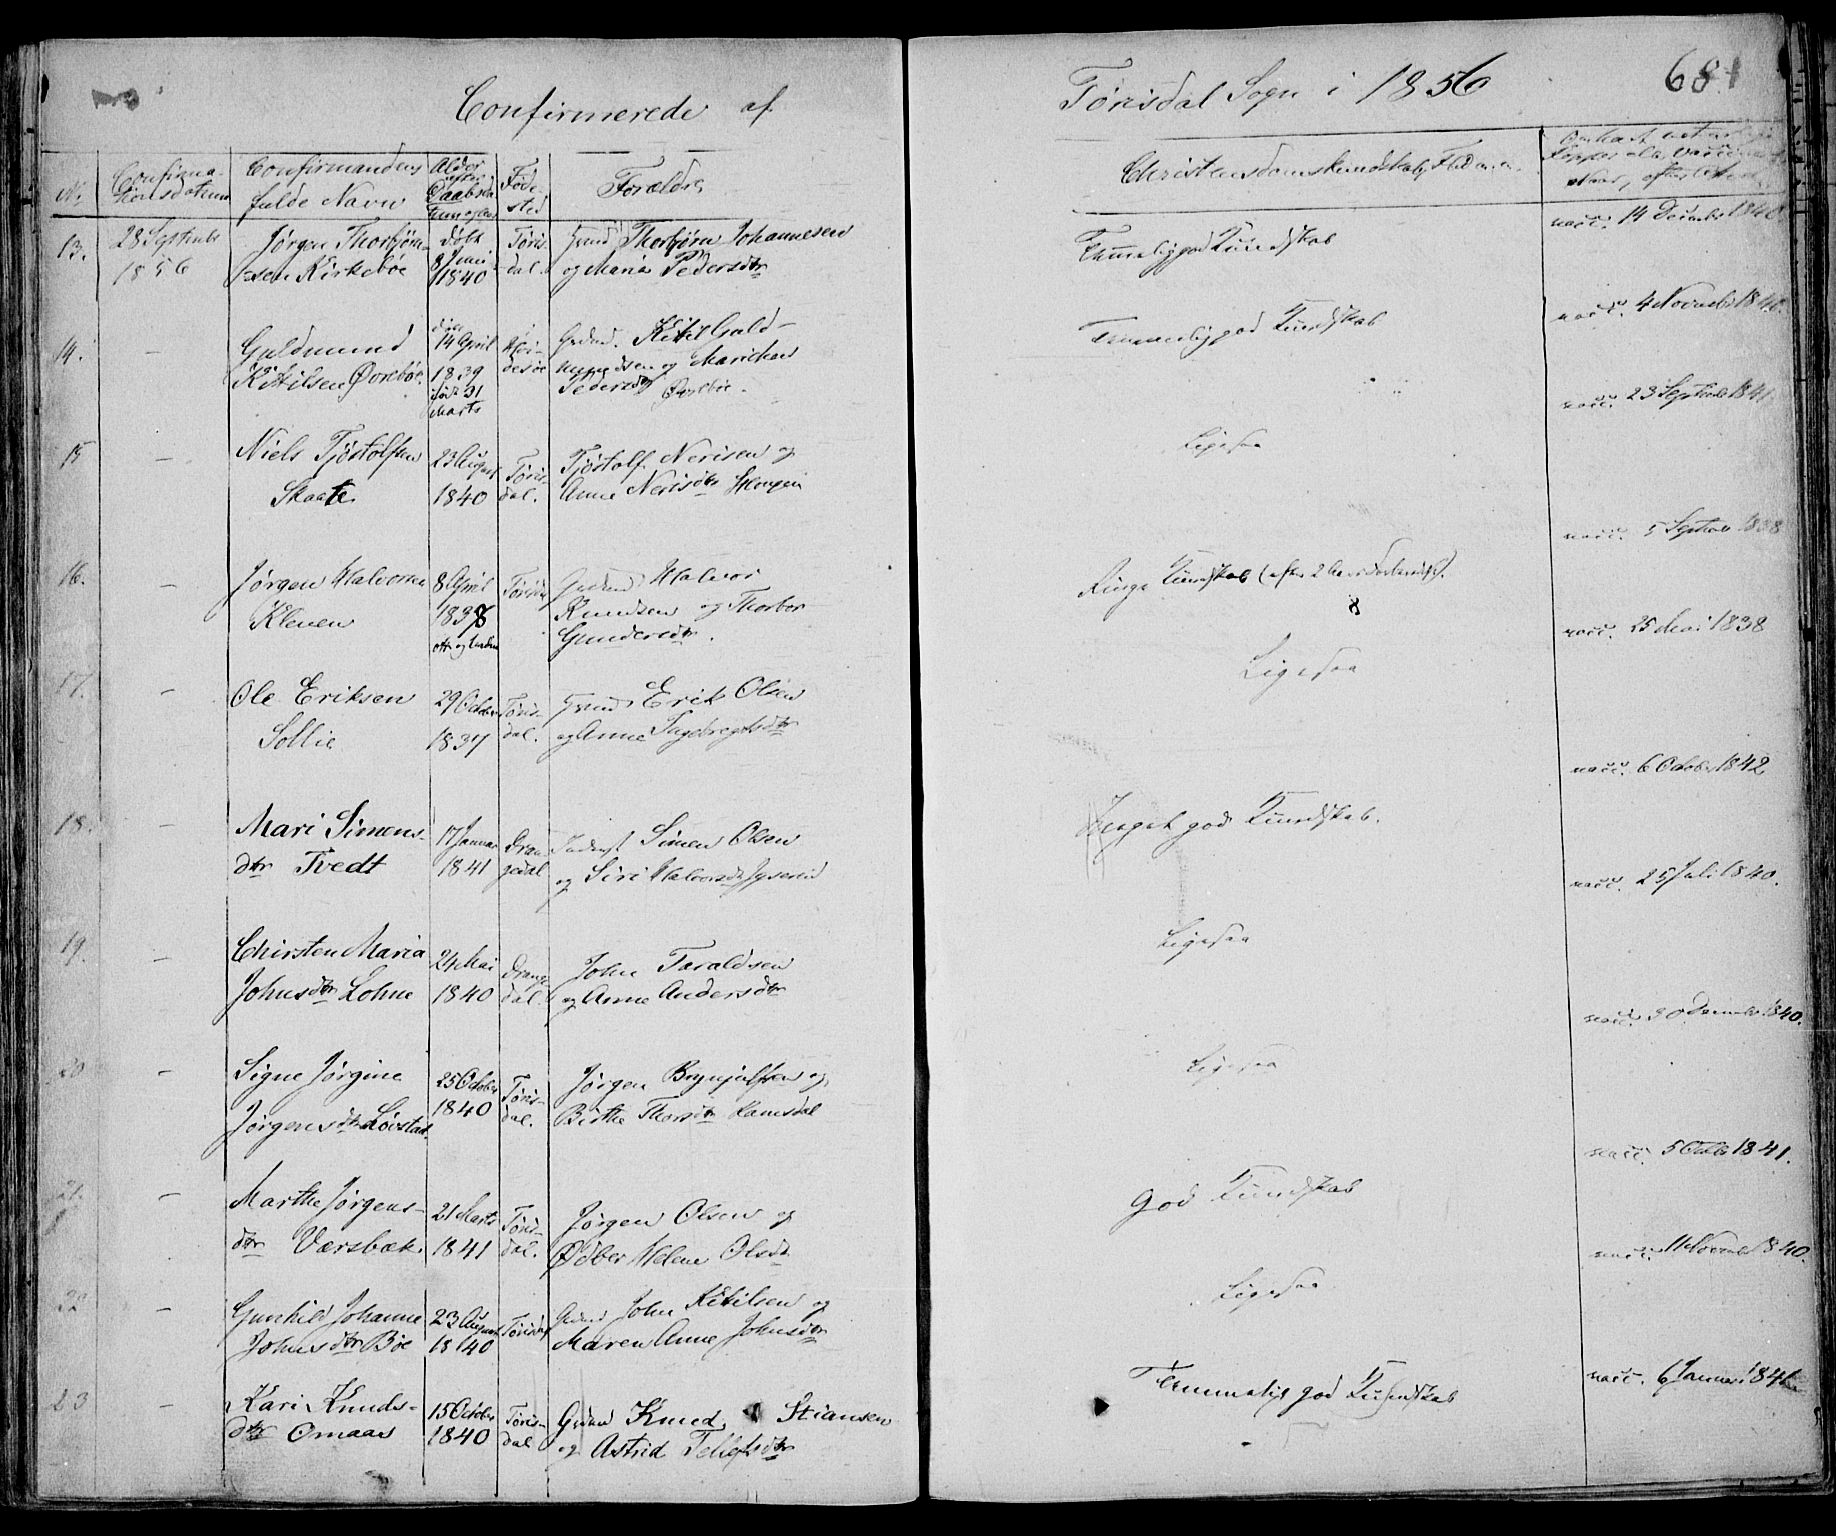 Confirmerede af
Tørisdal Sogn i 1856
681
No.
Confirma-
tionsdatum
Confirmandens
fulde Navn
Alder
efter
Daabsda-
Føde
sted
Forældre
Christendomskundskab, Flid m.m.
13.
28 September
1856
Jørgen Thorbjørn-
sen Kirkebøe
døbt
8 Juni
1840
Tøris
dal.
Thorbjørn Johannesen
og Maria Pedersdtr
Temmelig god Kundskab
vacc. 14 December 1840
14.
-
Guldmund
Kittilsen Øvrebøe
14 April
1839
født 31
Marts
Hei-
desøe
Kittil Guld-
mundsen og Marichen
Pedersdtr
Øvrebøe.
Temmelig god Kundskab
vacc. 4 Novemb 1840.
15
-
Niels Tjøstolfsen
Skaate
23 August
1840
Tøris-
dal.
Tjøstolf Nerisen og
Anne Nerisdtr
Ligesaa
vacc. 23 Septemb 1841
16.
-
Jørgen Halvorsen
Kleven
8 April
1838
otte og tredve
Tørisdal
Halvor
Knudsen og Thorbor
Gundersdtr.
Ringe Kundskab (efter 2 Aars Forberedelse).
8
vacc. 5 Septemb 1838
17.
-
Ole Eriksen
Sollie
29 October
1837
Tøris-
dal.
Erik Olsen
og Anne Ingebregtsdtr
Ligesaa
vacc. 25 Mai 1838
18.
-
Mari Simens-
dtr Tvedt
17 Januar
1841
Dran
gedal
Inderst Simen Olsen
og Siri Halvorsdtr
Meget god Kundskab.
vacc. 6 October 1842
19.
-
Chirsten Maria
Johnsdtr Lohne
24 Mai
1840
Drange
dal.
John Taraldsen
og Anne Andersdtr
Ligesaa
vacc. 25 Juli 1840.
20
-
Signe Jørgine
Jørgensdtr Løvstad
25 October
1840
Tøris-
dal.
Jørgen Brynjulfsen og
Birthe Thorsdtr Hamsdal
Ligesaa
vacc. 30 December 1840.
21.
-
Marthe Jørgens-
dtr Værsbæk
21 Marts
1841
Tøris-
dal.
Jørgen Olsen og
Ødber Helene Olsdtr
God Kundskab
vacc. 5 Octob 1841.
22
-
Gunhild Johanne
Johnsdtr Bøe
23 August
1840
Tørisdal
John Kittilsen og
Maren Anne Johnsdtr
Ligesaa
vacc. 11 Novemb 1840.
23
-
Kari Knuds-
dtr Omaas
15 October
1840
Tøris-
dal
Knud Stiansen
og Astrid Tellefsdtr
Temmelig god Kundskab
vacc. 6 Januar 1841